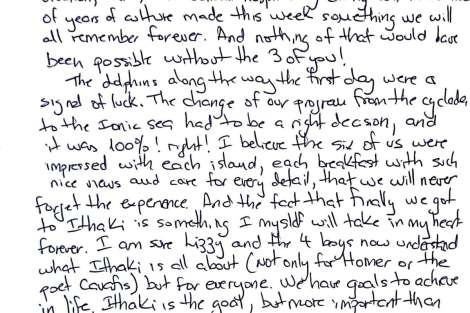 of years of culture made this week something we will
all remember forever. And nothing of that would have
been possible without the 3 of you!
The dolphins along the way the first day were a
signal of luck. The change of our program from the cyclades
to the Ionic sea had to be a right decison, and
it was 100%! right! I believe the six of us were
impressed with each island, each breakfast with such
nice views and care for every detail, that we will never
forget the experience. And the fact that finally we got
to Ithaki is something I myself will take in my heart
forever. I am sure Lizzy and the 4 boys now understand
what Ithaki is all about (not only for Homer or the
poet Cavafis) but for everyone. We have goals to achieve
in life, Ithaki is the goal, but more important than